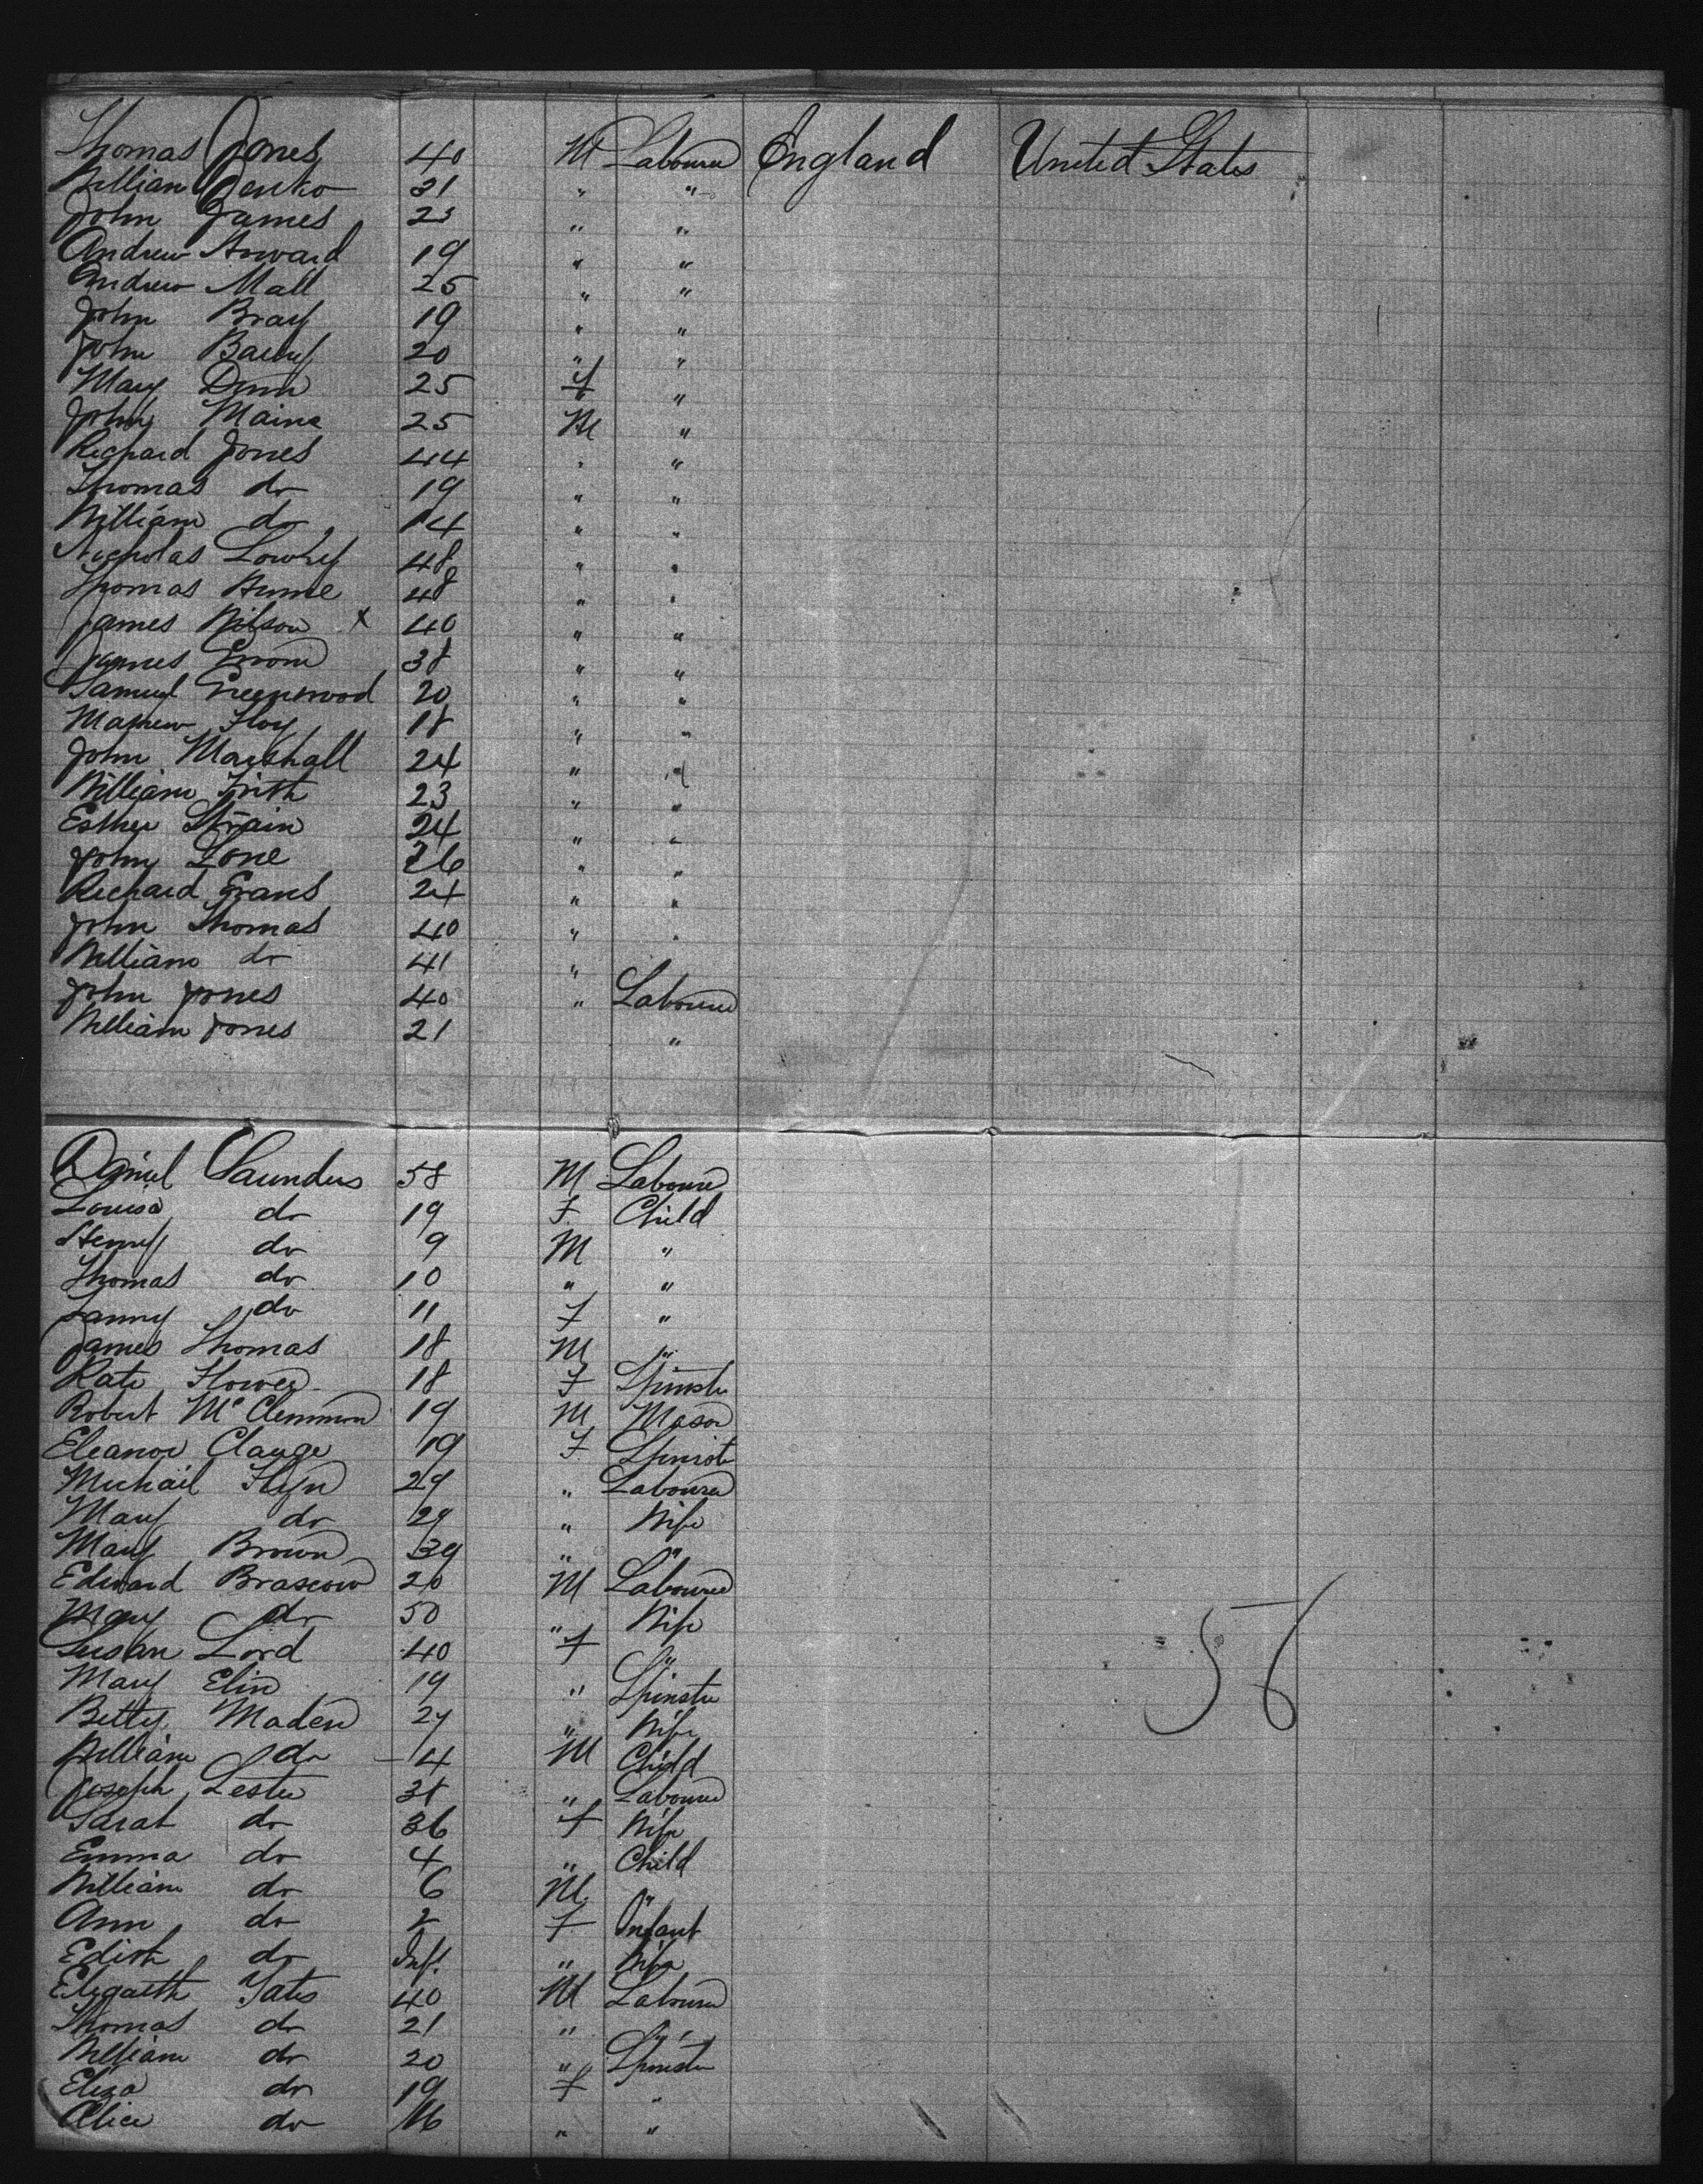 Thomas Jones 40 M Labourer England United States
William Jenko 31 " "
John James 23 " "
Andrew Howard 19 " "
Andrew Mall 25 " "
John Bray 19 " "
John Barry 20 " "
Mary Dunn 25 F "
John Maine 25 M "
Richard Jones 44 " "
Thomas do 19 " "
William do 14 " "
Nicholas Lowry 48 " "
Thomas Hume 48 " "
James Wilson x 40 " "
James 38 " "
Samuel Greenwood 20 " "
Mathew Floy 18 " "
John Marshall 24 " "
William Frith 23 " "
Esther Strain 24 " "
John Lone 26 " "
Richard Evans 24 " "
John Thomas 40 " "
William do 41 "
John Jones 40 " Labourer
William Jones 21 "
Daniel Saunders 58 M Labourer
Louisa do 19 F Child
Henry do 9 M "
Thomas do 10 " "
Fanny do 11 F "
James Thomas 18 M "
Kate Flower 18 F Spinster
Robert McClemmon 19 M Mason
Eleanor Clauge 19 F Spinster
Michail Flyn 29 " Labourer
Mary do 29 " Wife
Mary Brown 39 " "
Edward Brascow 20 M Labourer
Mary do 50 " Wife
Susan Lord 40 F "
Mary Elin 19 " Spinster
Betty Maden 27 " Wife
William do 4 M Child
Joseph Lester 38 " Labourer
Sarah do 36 F Wife
Emma do 4 " Child
William do 6 M "
Ann do 2 F Infant
Edith do Inf. " Wife
Yates 40 M Labourer
Thomas do 21 " "
William do 20 " Spinster
Eliza do 19 F "
Alice do 16 " "
56